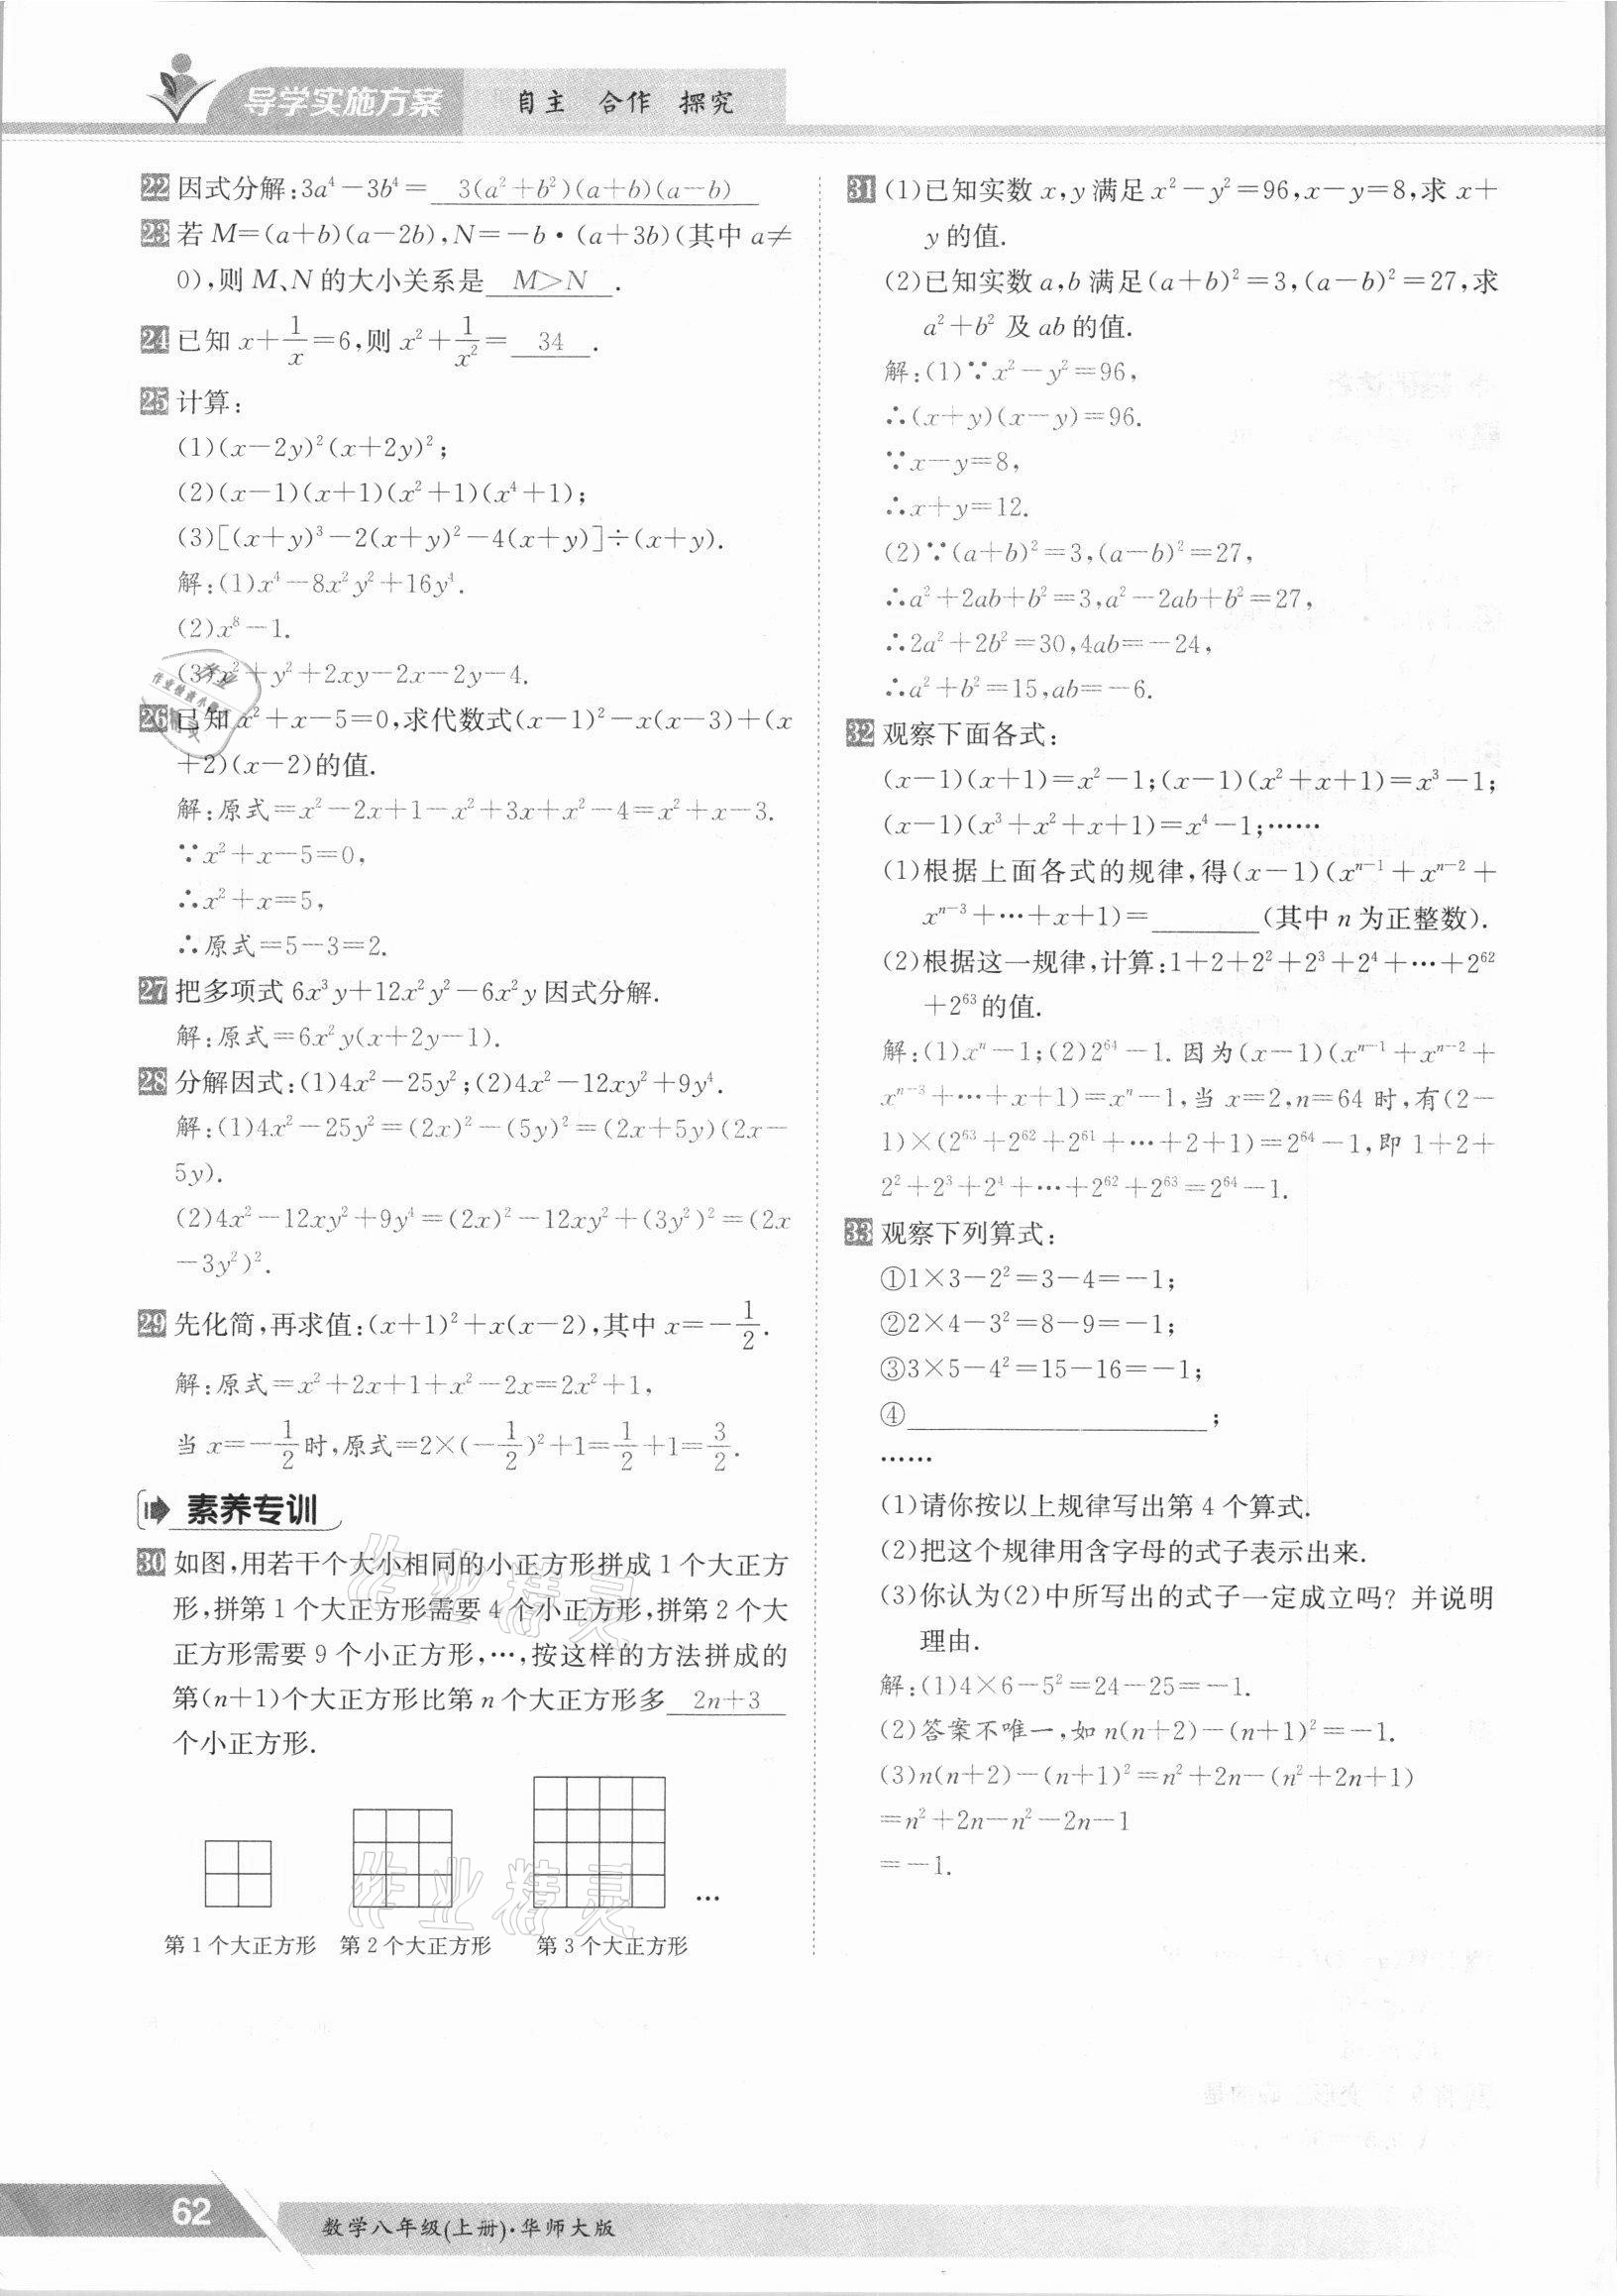 导学实施方案 自主 合作 探究
22 因式分解:3a⁴-3b⁴= 3(a²+b²)(a+b)(a-b)
23 若 M=(a+b)(a-2b),N=-b·(a+3b)(其中 a≠
0),则 M、N 的大小关系是 M>N .
24 已知 x+1/x=6,则 x²+1/x²= 34 .
25 计算:
(1)(x-2y)²(x+2y)²;
(2)(x-1)(x+1)(x²+1)(x⁴+1);
(3)[(x+y)³-2(x+y)²-4(x+y)]÷(x+y).
解:(1)x⁴-8x²y²+16y⁴.
(2)x⁸-1.
(3)x²+y²+2xy-2x-2y-4.
26 已知 x²+x-5=0,求代数式(x-1)²-x(x-3)+(x
+2)(x-2)的值.
解:原式=x²-2x+1-x²+3x+x²-4=x²+x-3.
∵x²+x-5=0,
∴x²+x=5,
∴原式=5-3=2.
27 把多项式 6x³y+12x²y²-6x²y 因式分解.
解:原式=6x²y(x+2y-1).
28 分解因式:(1)4x²-25y²;(2)4x²-12xy²+9y⁴.
解:(1)4x²-25y²=(2x)²-(5y)²=(2x+5y)(2x-
5y).
(2)4x²-12xy²+9y⁴=(2x)²-12xy²+(3y²)²=(2x
-3y²)².
29 先化简,再求值:(x+1)²+x(x-2),其中 x=-1/2.
解:原式=x²+2x+1+x²-2x=2x²+1,
当 x=-1/2时,原式=2×(-1/2)²+1=1/2+1=3/2.
素养专训
30 如图,用若干个大小相同的小正方形拼成 1 个大正方
形,拼第 1 个大正方形需要 4 个小正方形,拼第 2 个大
正方形需要 9 个小正方形,…,按这样的方法拼成的
第(n+1)个大正方形比第 n 个大正方形多 2n+3
个小正方形.
…
第 1 个大正方形 第 2 个大正方形 第 3 个大正方形
31 (1)已知实数 x,y 满足 x²-y²=96,x-y=8,求 x+
y 的值.
(2)已知实数 a,b 满足(a+b)²=3,(a-b)²=27,求
a²+b² 及 ab 的值.
解:(1)∵x²-y²=96,
∴(x+y)(x-y)=96.
∵x-y=8,
∴x+y=12.
(2)∵(a+b)²=3,(a-b)²=27,
∴a²+2ab+b²=3,a²-2ab+b²=27,
∴2a²+2b²=30,4ab=-24,
∴a²+b²=15,ab=-6.
32 观察下面各式:
(x-1)(x+1)=x²-1;(x-1)(x²+x+1)=x³-1;
(x-1)(x³+x²+x+1)=x⁴-1;……
(1)根据上面各式的规律,得(x-1)(xⁿ⁻¹+xⁿ⁻²+
xⁿ⁻³+…+x+1)=________(其中 n 为正整数).
(2)根据这一规律,计算:1+2+2²+2³+2⁴+…+2⁶²
+2⁶³的值.
解:(1)xⁿ-1;(2)2⁶⁴-1. 因为(x-1)(xⁿ⁻¹+xⁿ⁻²+
xⁿ⁻³+…+x+1)=xⁿ-1,当 x=2,n=64 时,有(2-
1)×(2⁶³+2⁶²+2⁶¹+…+2+1)=2⁶⁴-1,即 1+2+
2²+2³+2⁴+…+2⁶²+2⁶³=2⁶⁴-1.
33 观察下列算式:
①1×3-2²=3-4=-1;
②2×4-3²=8-9=-1;
③3×5-4²=15-16=-1;
④____________________;
……
(1)请你按以上规律写出第 4 个算式.
(2)把这个规律用含字母的式子表示出来.
(3)你认为(2)中所写出的式子一定成立吗? 并说明
理由.
解:(1)4×6-5²=24-25=-1.
(2)答案不唯一,如 n(n+2)-(n+1)²=-1.
(3)n(n+2)-(n+1)²=n²+2n-(n²+2n+1)
=n²+2n-n²-2n-1
=-1.
作业精灵
作业精灵
62
数学八年级(上册)·华师大版